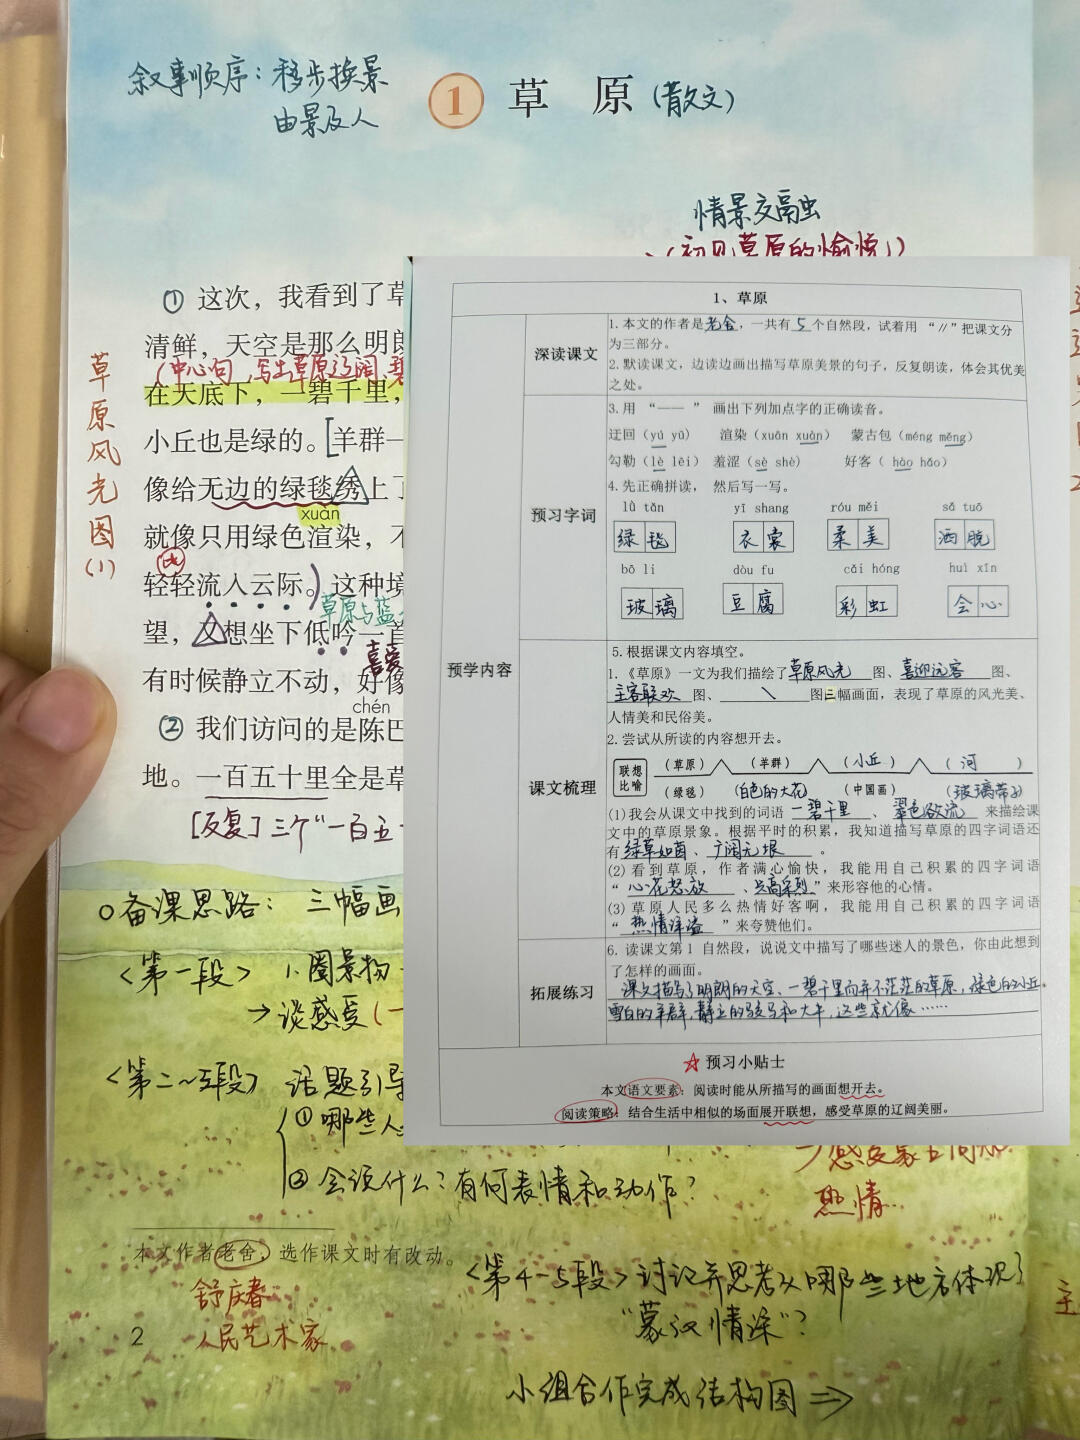 叙事顺序：移步换景
由景及人
1 草 原（散文）
情景交融
（初见草原的愉悦）
① 这次，我看到了草
清鲜，天空是那么明朗
（中心句，写出草原辽阔、碧
在天底下，一碧千里，
小丘也是绿的。[羊群一
像给无边的绿毯绣上了
xuàn
就像只用绿色渲染，不
比
轻轻流入云际。）这种境
草原与蓝
望，又想坐下低吟一首
喜爱
有时候静立不动，好像
chén
② 我们访问的是陈巴
地。一百五十里全是草
[反复]三个“一百五十
草原风光图（1）
○备课思路：三幅画
<第一段> 1.圈景物
→谈感受（一
<第二~三段> 话题引导
①哪些人
②会说什么？有何表情和动作？
热情
本文作者老舍，选作课文时有改动。
舒庆春
人民艺术家
2
<第4-5段>讨论并思考从哪些地方体现了
“蒙汉情深”？
小组合作完成结构图⇒
1、草原
预学内容
深读课文
1.本文的作者是老舍，一共有5个自然段，试着用 “//”把课文分
为三部分。
2.默读课文，边读边画出描写草原美景的句子，反复朗读，体会其优美
之处。
预习字词
3.用 “—— ” 画出下列加点字的正确读音。
迂回（yú yū） 渲染（xuān xuàn） 蒙古包（méng měng）
勾勒（lè lēi） 羞涩（sè shè） 好客（ hào hǎo）
4.先正确拼读， 然后写一写。
lǜ tǎn yī shang róu měi sǎ tuō
绿毯 衣裳 柔美 洒脱
bō li dòu fu cǎi hóng huì xīn
玻璃 豆腐 彩虹 会心
课文梳理
5.根据课文内容填空。
1.《草原》一文为我们描绘了草原风光图、喜迎远客图、
主客联欢图、 \ 图三幅画面，表现了草原的风光美、
人情美和民俗美。
2.尝试从所读的内容想开去。
联想 （草原） （羊群） （小丘） （ 河 ）
比喻 （绿毯） （白色的大花） （中国画） （玻璃带子）
(1)我会从课文中找到的词语 一碧千里 、 翠色欲流 来描绘课
文中的草原景象。根据平时的积累，我知道描写草原的四字词语还
有 绿草如茵 、 广阔无垠 。
(2)看到草原，作者满心愉快，我能用自己积累的四字词语
“ 心花怒放 、兴高采烈 ”来形容他的心情。
(3)草原人民多么热情好客啊，我能用自己积累的四字词语
“ 热情洋溢 ”来夸赞他们。
拓展练习
6.读课文第1 自然段，说说文中描写了哪些迷人的景色，你由此想到
了怎样的画面。
课文描写了明朗的天空、一碧千里而并不茫茫的草原，绿色的小丘、
雪白的羊群，静立的骏马和大牛，这些就像……
☆ 预习小贴士
本文语文要素：阅读时能从所描写的画面想开去。
阅读策略：结合生活中相似的场面展开联想，感受草原的辽阔美丽。